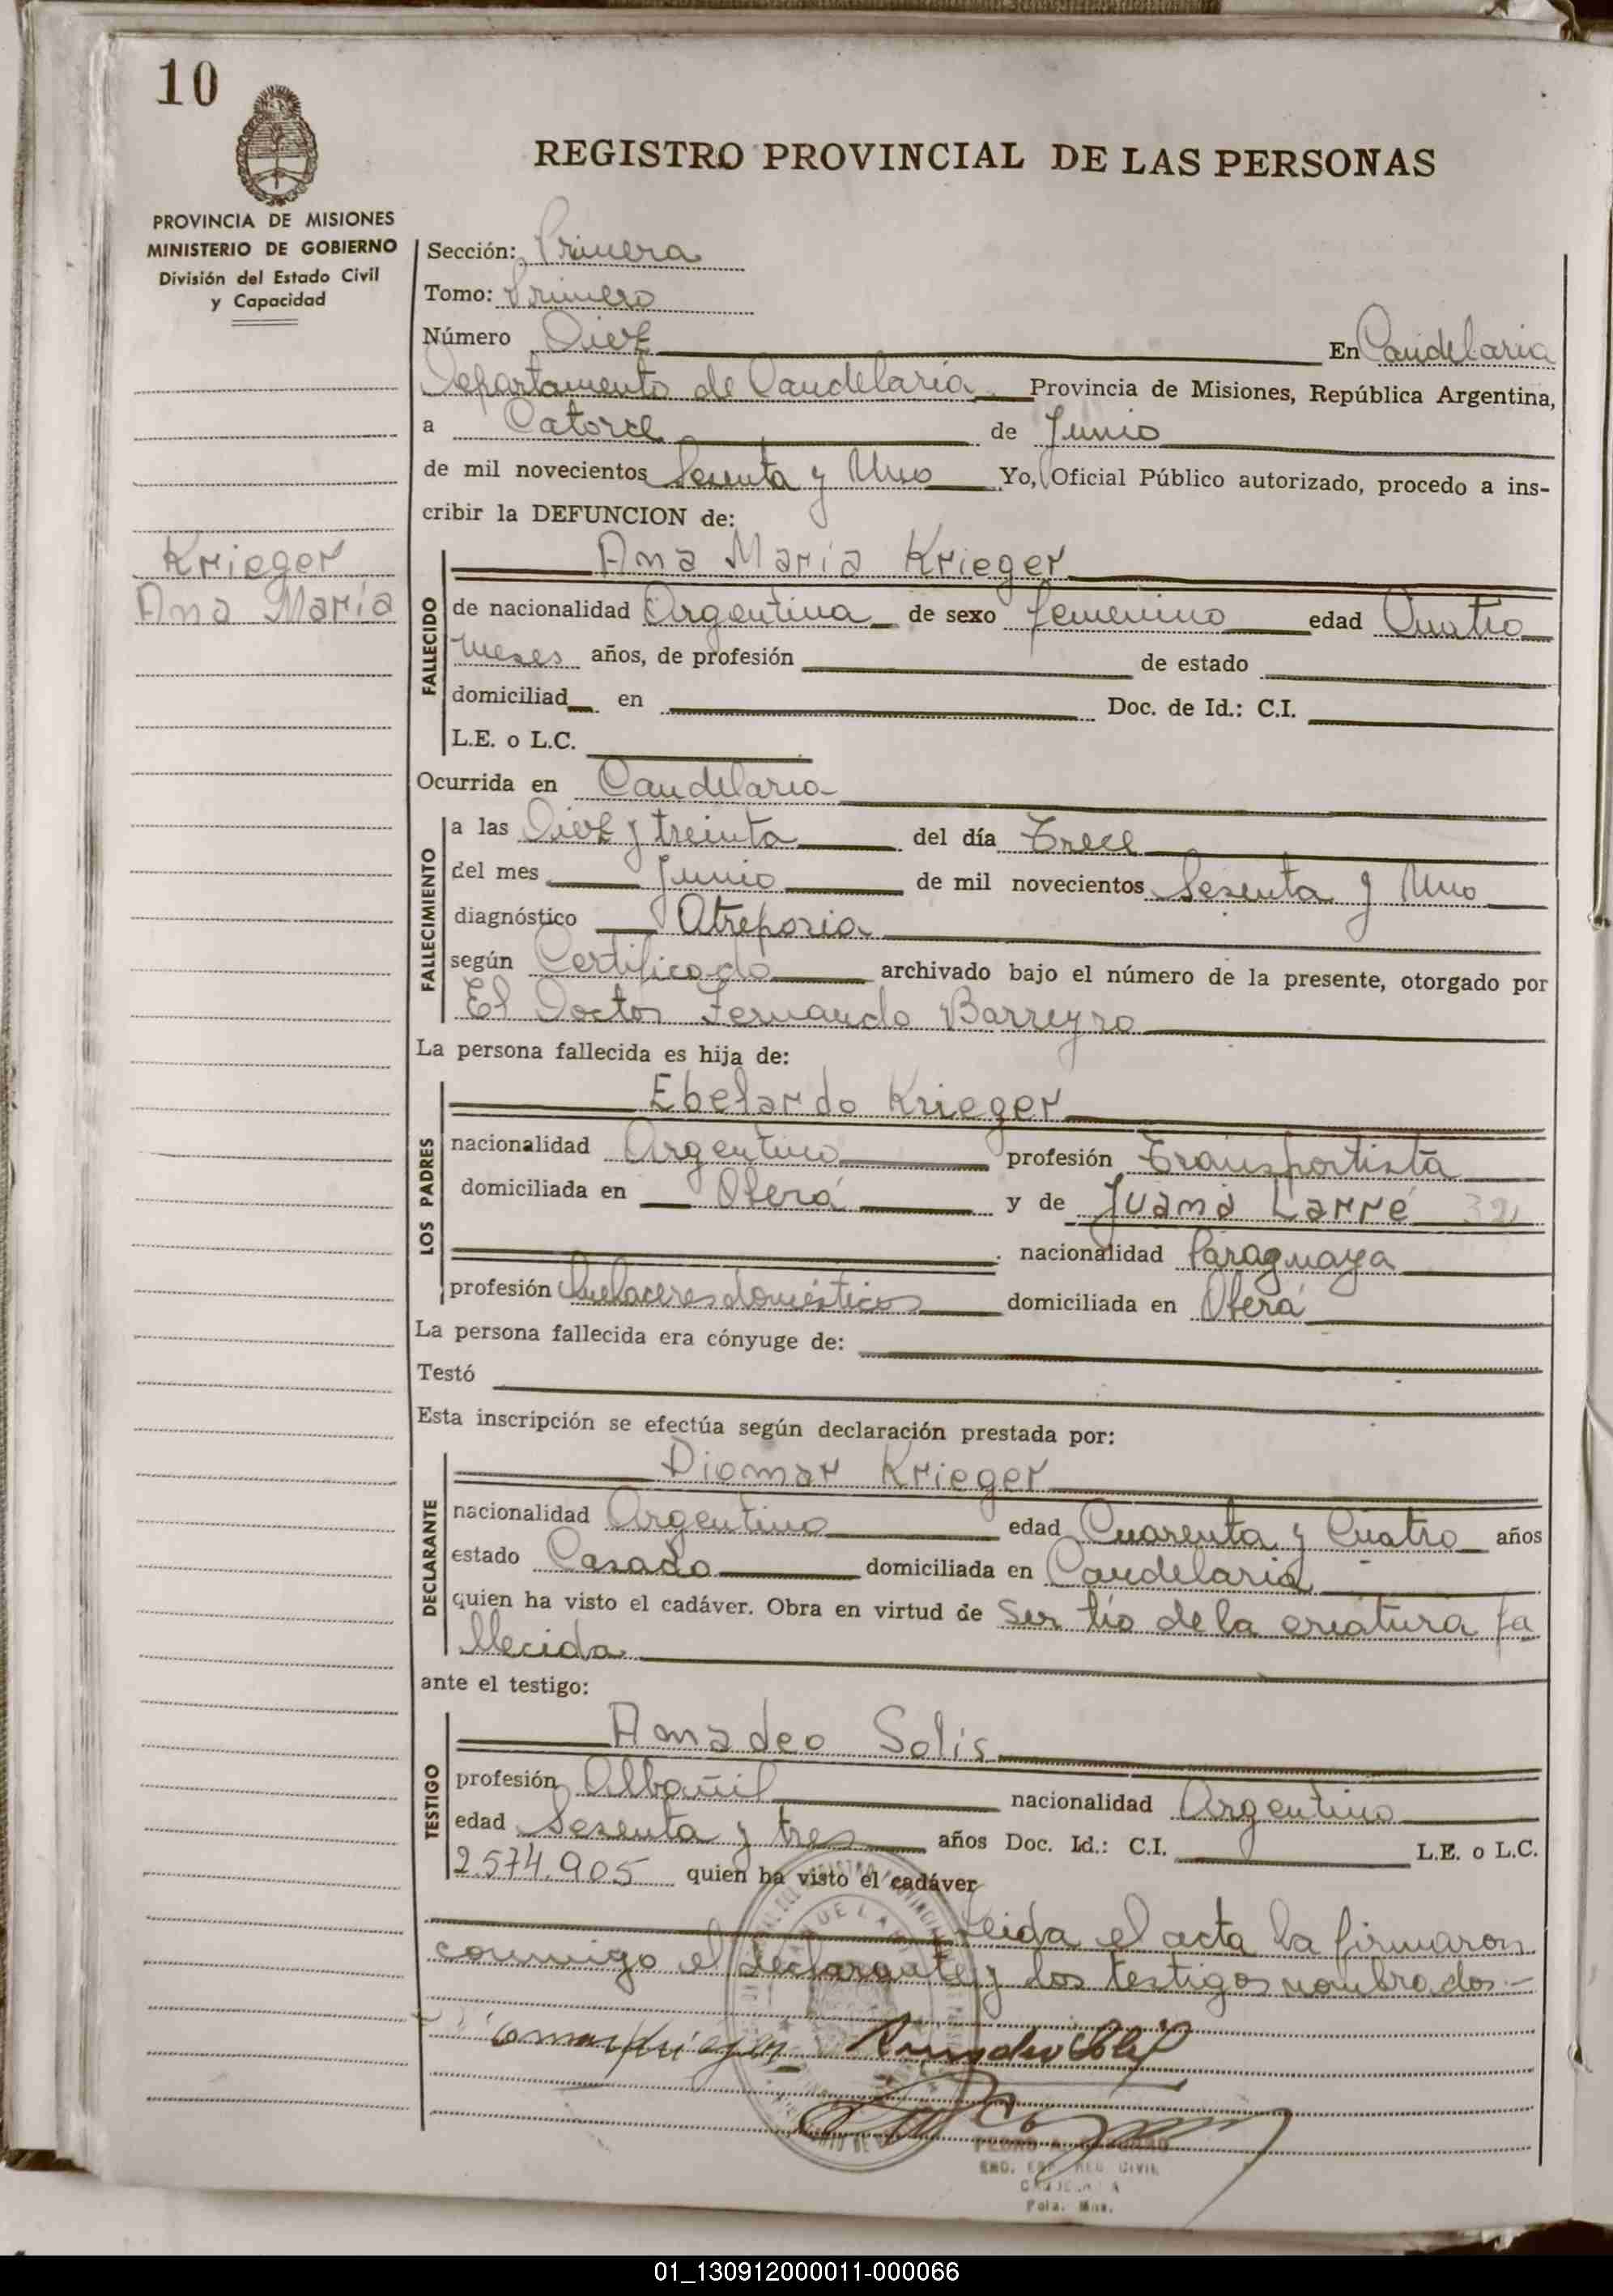 10
REGISTRO PROVINCIAL DE LAS PERSONAS
PROVINCIA DE MISIONES
MINISTERIO DE GOBIERNO
División del Estado Civil
y Capacidad
Krieger
Ana María
Sección: Primera
Tomo: Primero
Número Diez En Candelaria
Departamento de Candelaria Provincia de Misiones, República Argentina,
a Catorce de Junio
de mil novecientos Sesenta y Uno Yo, Oficial Público autorizado, procedo a ins-
cribir la DEFUNCION de:
Ana María Krieger
FALLECIDO
de nacionalidad Argentina de sexo femenino edad Cuatro
meses años, de profesión de estado
domiciliad en Doc. de Id.: C.I.
L.E. o L.C.
Ocurrida en Candelaria
FALLECIMIENTO
a las Diez y treinta del día Trece
del mes Junio de mil novecientos Sesenta y Uno
diagnóstico Atreposia
según Certificado archivado bajo el número de la presente, otorgado por
El Doctor Fernando Barreyro
La persona fallecida es hija de:
LOS PADRES
Ebelardo Krieger
nacionalidad Argentino profesión Transportista
domiciliada en Oberá y de Juana Larré 32
nacionalidad Paraguaya
profesión Quehaceres domésticos domiciliada en Oberá
La persona fallecida era cónyuge de:
Testó
Esta inscripción se efectúa según declaración prestada por:
DECLARANTE
Diomar Krieger
nacionalidad Argentino edad Cuarenta y Cuatro años
estado Casado domiciliada en Candelaria
quien ha visto el cadáver. Obra en virtud de Ser tío de la criatura fa
llecida
ante el testigo:
TESTIGO
Amadeo Solis
profesión Albañil nacionalidad Argentino
edad Sesenta y tres años Doc. Id.: C.I. L.E. o L.C.
2.574.905 quien ha visto el cadáver
Leida el acta la firmaron
conmigo el declarante y los testigos nombrados.-
Diomar Krieger Amadeo Solis
PEDRO A.
REG. CIVIL
Pcia. Mns.
01_130912000011-000066